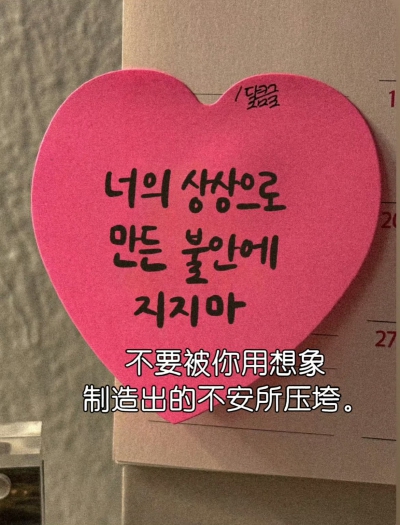 너의 상상으로
만든 불안에
지지마
1
20
27
不要被你用想象
制造出的不安所压垮。